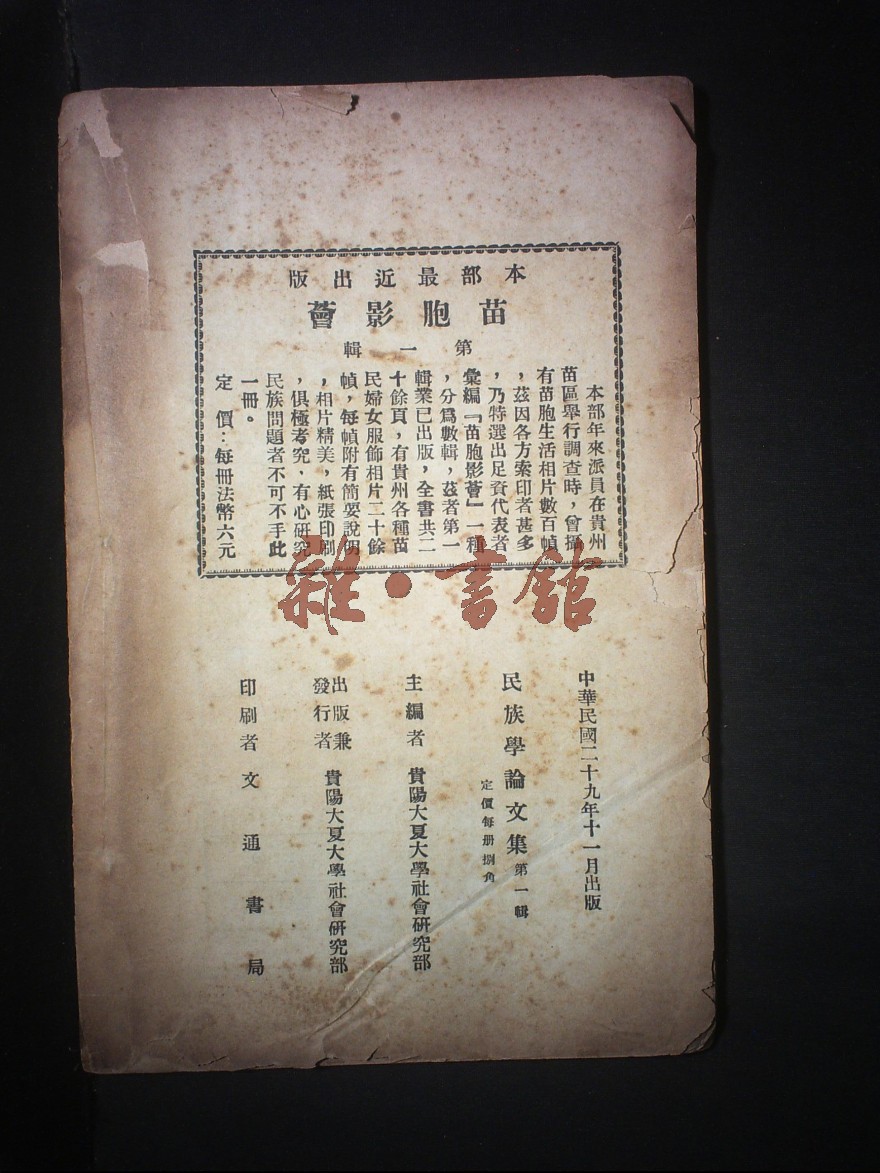 本部最近出版
苗胞影薈
第一輯
本部年來派員在貴州
苗區舉行調查時，曾攝
有苗胞生活相片數百幀
，茲因各方索印者甚多
，乃特選出足資代表者
彙編『苗胞影薈』一種
，分爲數輯，茲者第一
輯業已出版，全書共二
十餘頁，有貴州各種苗
民婦女服飾相片二十餘
幀，每幀附有簡要說明
，相片精美，紙張印刷
，俱極考究，有心研究
民族問題者不可不手此
一冊。
定價：每冊法幣六元
雜·書館
中華民國二十九年十一月出版
民族學論文集第一輯
定價每册捌角
主編者 貴陽大夏大學社會研究部
出版兼發行者 貴陽大夏大學社會研究部
印刷者 文通書局